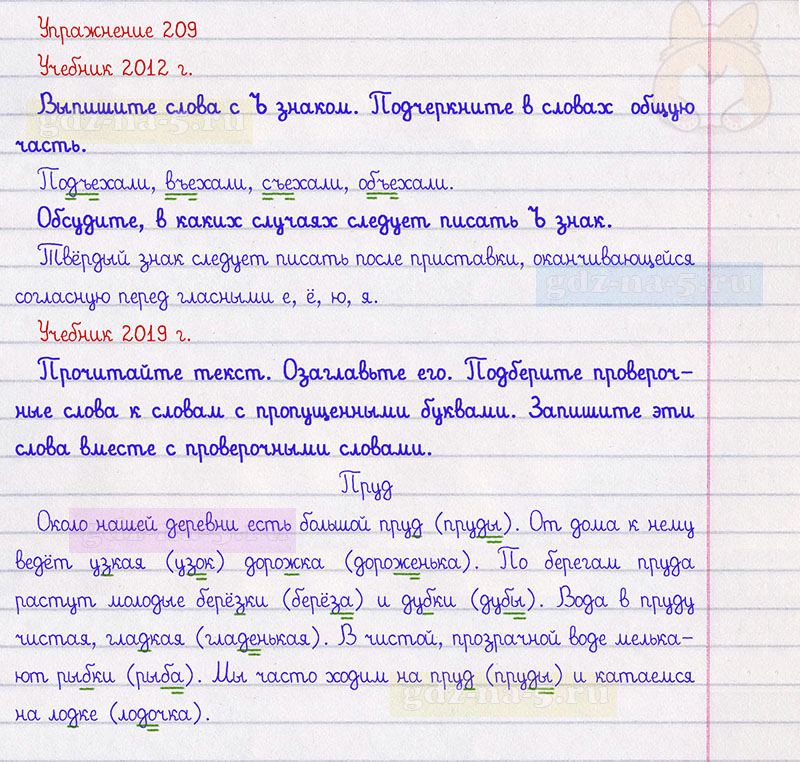 Упражнение 209
Учебник 2012 г.
Выпишите слова с Ъ знаком. Подчеркните в словах общую
часть.
Подъехали, въехали, съехали, объехали.
Обсудите, в каких случаях следует писать Ъ знак.
Твёрдый знак следует писать после приставки, оканчивающейся
согласную перед гласными е, ё, ю, я.
Учебник 2019 г.
Прочитайте текст. Озаглавьте его. Подберите провероч-
ные слова к словам с пропущенными буквами. Запишите эти
слова вместе с проверочными словами.
Пруд
Около нашей деревни есть большой пруд (пруды). От дома к нему
ведёт узкая (узок) дорожка (дороженька). По берегам пруда
растут молодые берёзки (берёза) и дубки (дубы). Вода в пруду
чистая, гладкая (гладенькая). В чистой, прозрачной воде мелька-
ют рыбки (рыба). Мы часто ходим на пруд (пруды) и катаемся
на лодке (лодочка).
gdz-na-5.ru
gdz-na-5.ru
gdz-na-5.ru
gdz-na-5.ru